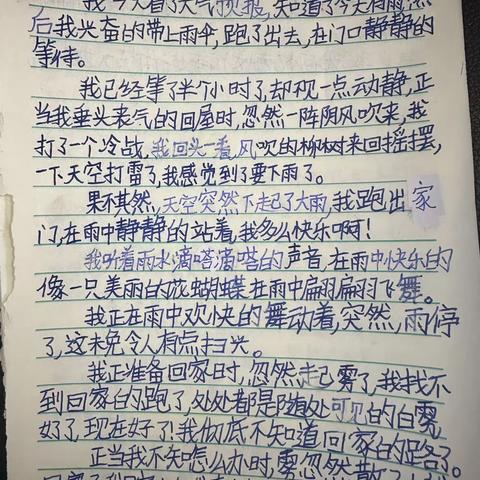 我今天看了天气预报,知道了今天有雨,然
后我兴奋的带上雨伞,跑了出去,在门口静静的
等待。
我已经等了半个小时了,却没一点动静,正
当我垂头丧气的回屋时,忽然一阵阴风吹来,我
打了一个冷战,我回头一看,风吹的柳树来回摇摆,
一下天空打雷了,我感觉到了要下雨了。
果不其然,天空突然下起了大雨,我跑出家
门,在雨中静静的站着,我多么快乐啊!
我听着雨水滴嗒滴嗒的声音,在雨中快乐的
像一只美丽的花蝴蝶在雨中扁羽扁羽飞舞。
我正在雨中欢快的舞动着,突然,雨停
了,这未免令人有点扫兴。
我正准备回家时,忽然起雾了,我找不
到回家的跑了,处处都是随处可见的白雾
好了,现在好了!我彻底不知道回家的路了。
正当我不知怎么办时,雾忽然散了